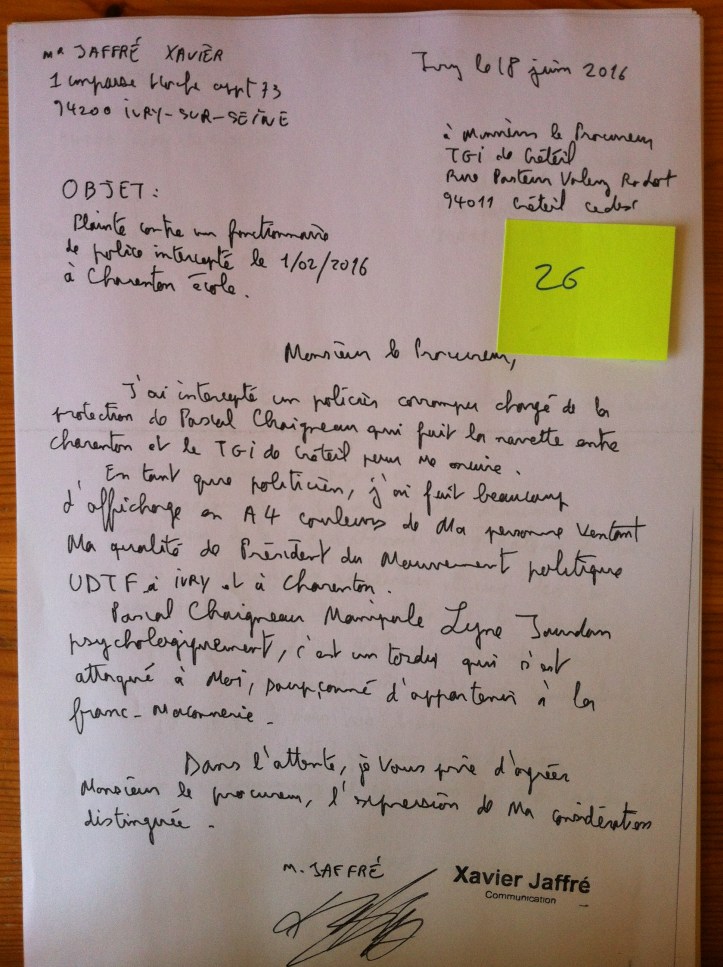 Mr JAFFRÉ XAVIER
1 impasse bloche appt 73
94200 IVRY-SUR-SEINE
Ivry le 18 juin 2016
à Monsieur le Procureur
TGI de Créteil
Rue Pasteur Valery Radot
94011 Créteil cedex
OBJET :
Plainte contre un fonctionnaire
de police intercepté le 1/02/2016
à Charenton école.
26
Monsieur le Procureur,
J'ai intercepté un policier corrompu chargé de la
protection de Pascal Chaigneau qui fait la navette entre
Charenton et le TGI de Créteil pour me nuire.
En tant que politicien, j'ai fait beaucoup
d'affichage en A4 couleurs de Ma personne Ventant
Ma qualité de Président du Mouvement politique
UDTF à IVRY et à Charenton.
Pascal Chaigneau Manipule Lyne
psychologiquement, c'est un tordu qui s'est
attaqué à Moi, soupçonné d'appartenir à la
franc-Maconnerie.
Dans l'attente, je Vous prie d'agréer
Monsieur le procureur, l'expression de Ma considération
distinguée.
M. JAFFRÉ
Xavier Jaffré
Communication